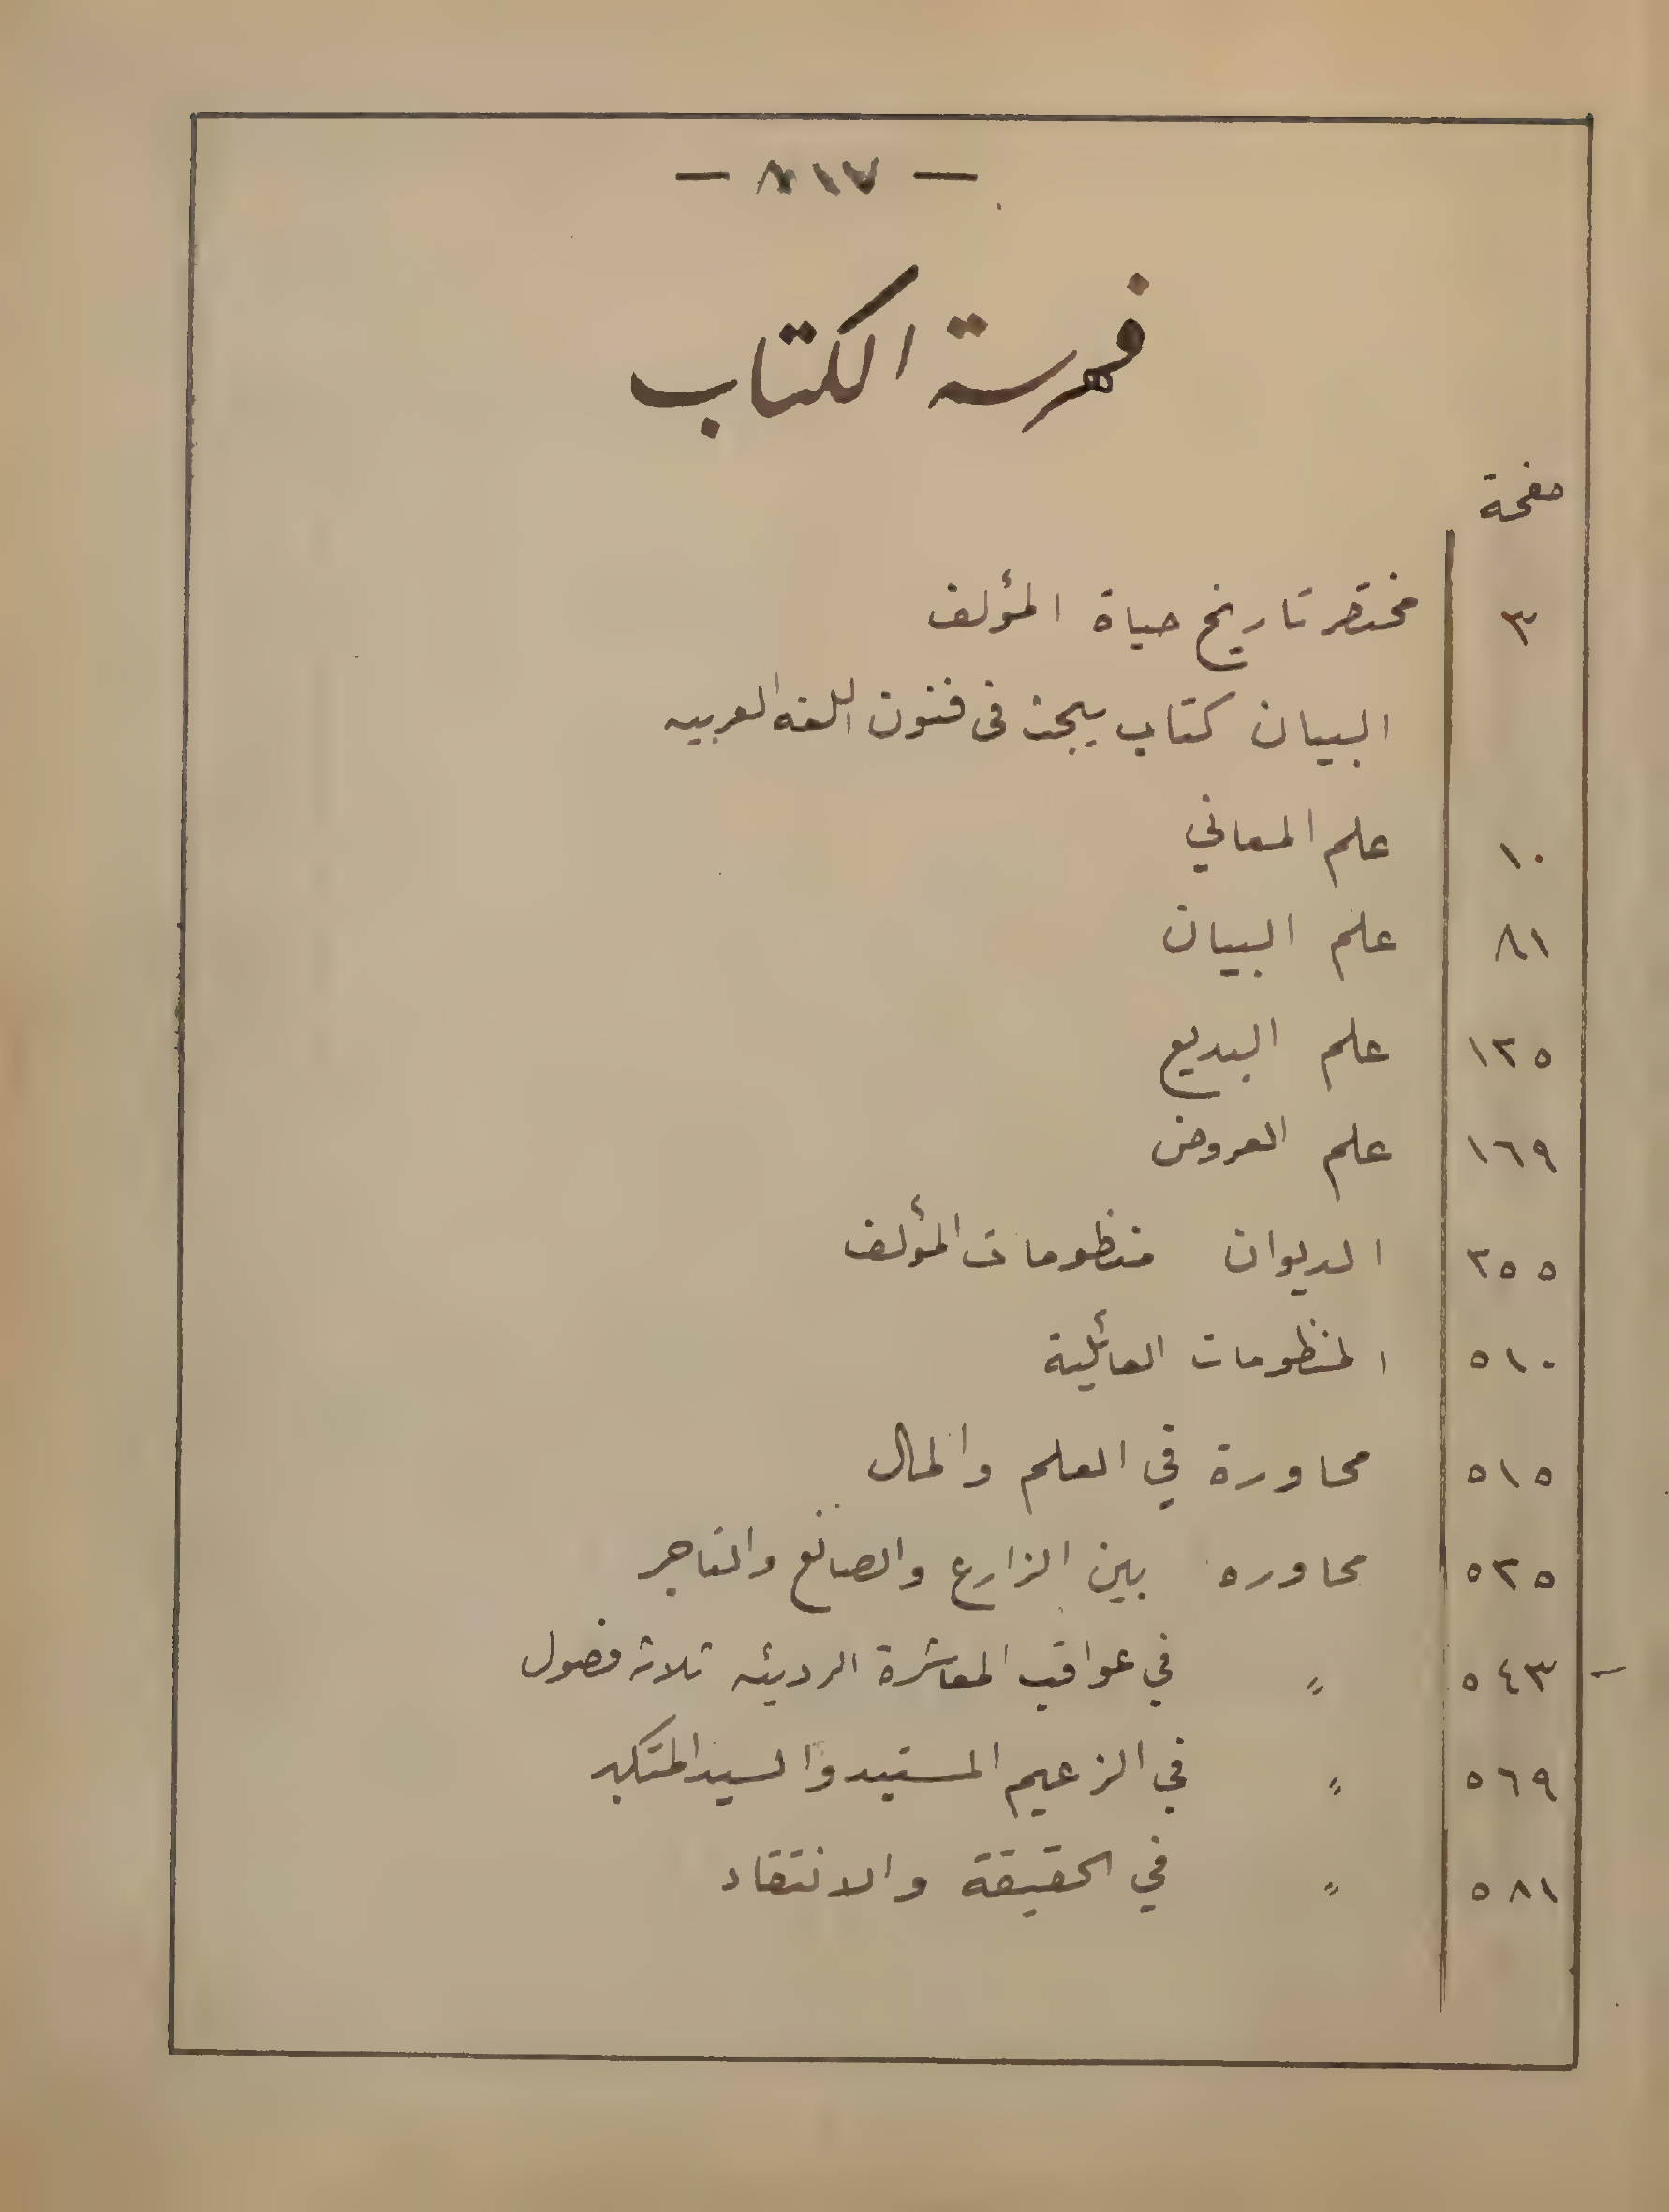 — ٨١٧ —
فهرسة الكتاب
صفحة
٣ مختصر تاريخ حياة المؤلف
البيان كتاب يبحث في فنون اللغه العربيه
١٠ علم المعاني
٨١ علم البيان
١٢٥ علم البديع
١٦٩ علم العروض
٢٥٥ الديوان منظومات المؤلف
٥١٠ المنظومات العائلية
٥١٥ محاورة في العلم والمال
٥٢٥ محاوره بين الزارع والصانع والتاجر
٥٤٣ 〃 في عواقب المعاشرة الرديئه ثلاث فصول
٥٦٩ 〃 في الزعيم المستبد والسيد المتكبر
٥٨١ 〃 في الحقيقة والانتقاد